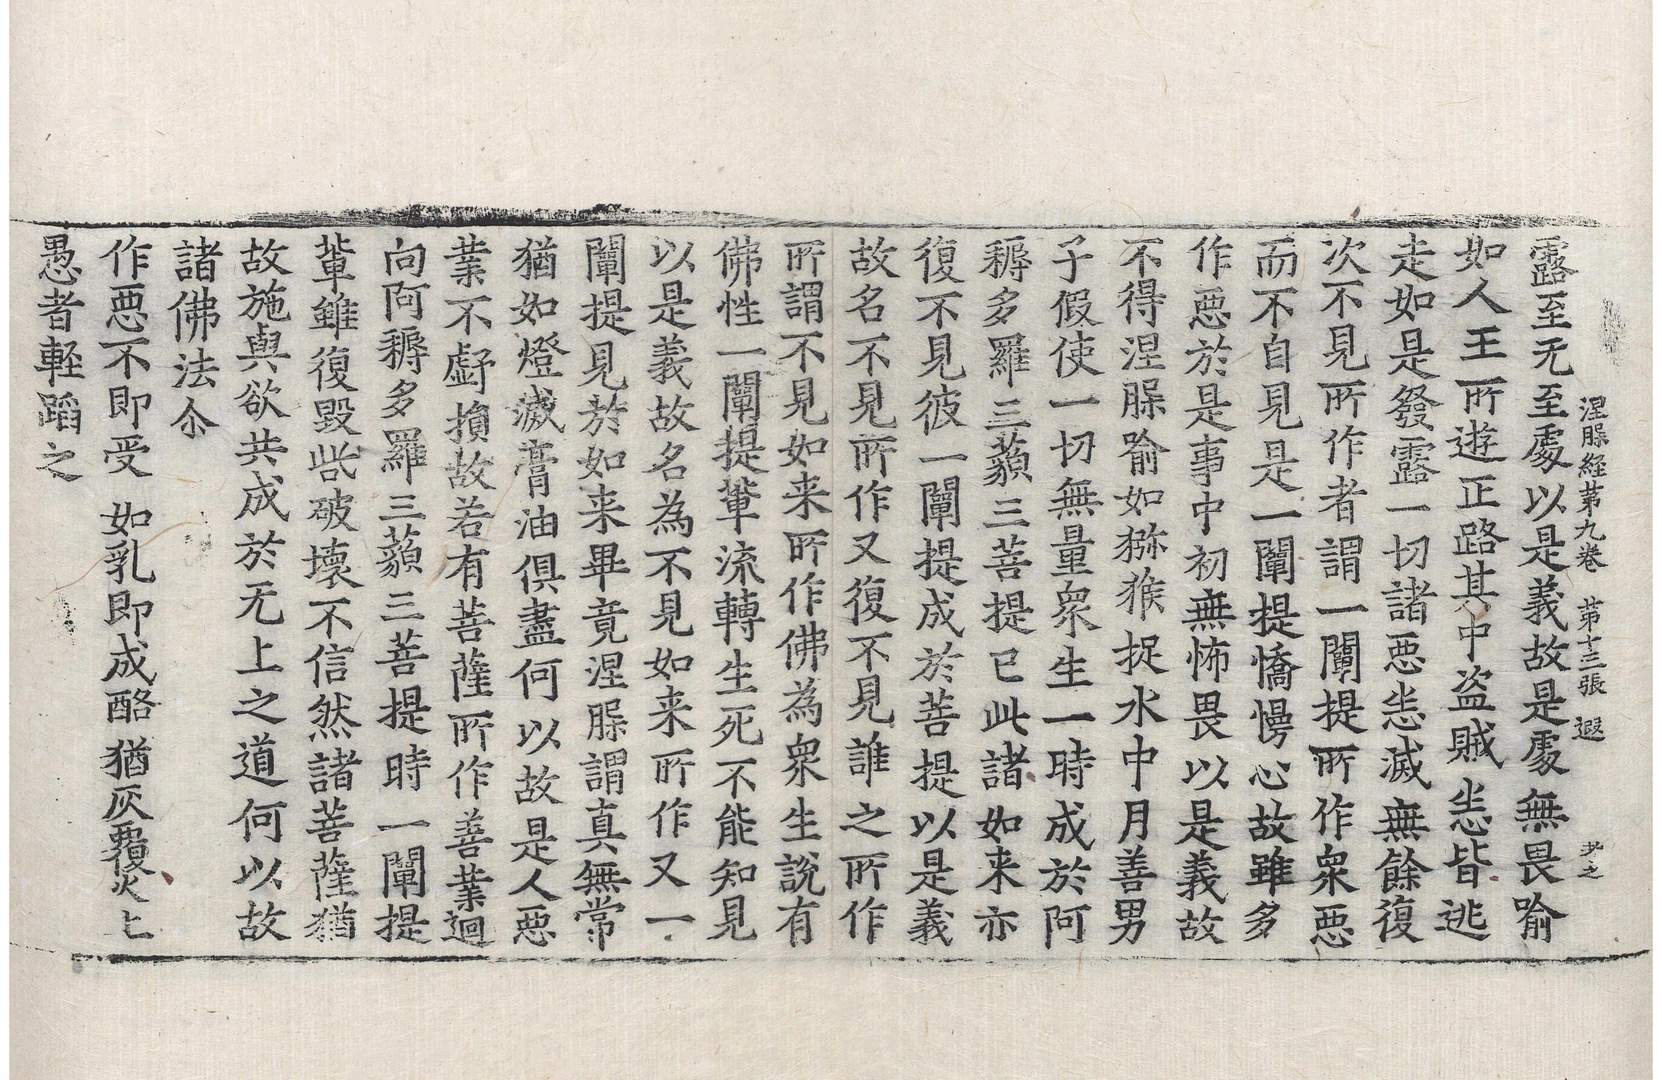 涅槃経苐九卷 苐十三張 遐
露至无至處以是義故是處無畏喻
如人王所遊正路其中盗賊恚皆逃
走如是發露一切諸惡恚滅無餘復
次不見所作者謂一闡提所作衆惡
而不自見是一闡提憍慢心故雖多
作惡於是事中初無怖畏以是義故
不得涅槃喻如猕猴捉水中月善男
子假使一切無量衆生一時成於阿
耨多羅三藐三菩提已此諸如来亦
復不見彼一闡提成於菩提以是義
故名不見所作又復不見誰之所作
所謂不見如来所作佛為衆生說有
佛性一闡提輩流轉生死不能知見
以是義故名為不見如来所作又一
闡提見於如来畢竟涅槃謂真無常
猶如燈滅膏油俱盡何以故是人惡
業不虧損故若有菩薩所作善業迴
向阿耨多羅三藐三菩提時一闡提
輩雖復毀呰破壞不信然諸菩薩猶
故施與欲共成於无上之道何以故
諸佛法尒
作惡不即受 如乳即成酪 猶灰覆火上
愚者輕蹈之